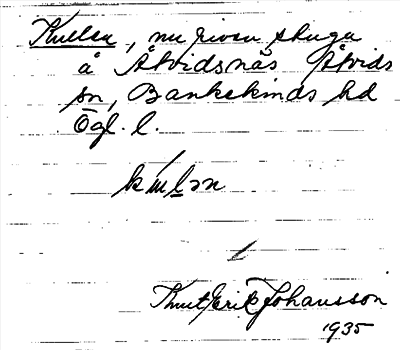 Kullen, nu riven stuga
å Åtvidsnäs Åtvids
sn, Bankekinds hd
Ögl. l.
kɯlən
Knut Erik Johansson
1935